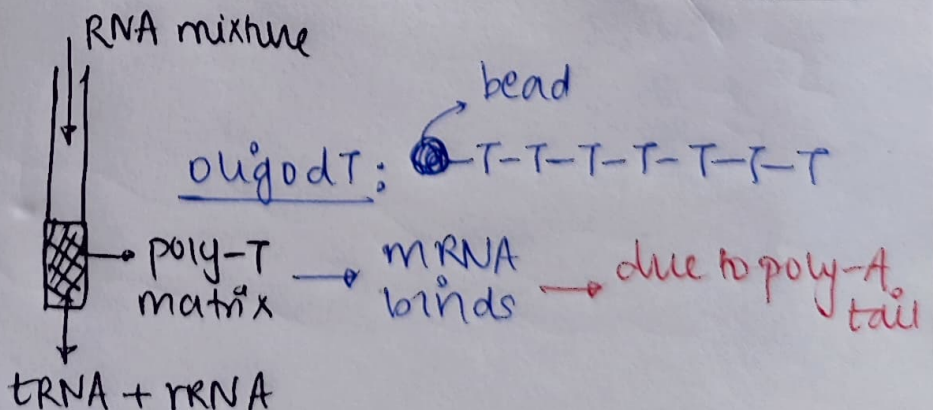 RNA mixture
bead
oligodT: -T-T-T-T-T-T-T
poly-T matrix → mRNA binds → due to poly-A tail
tRNA + rRNA